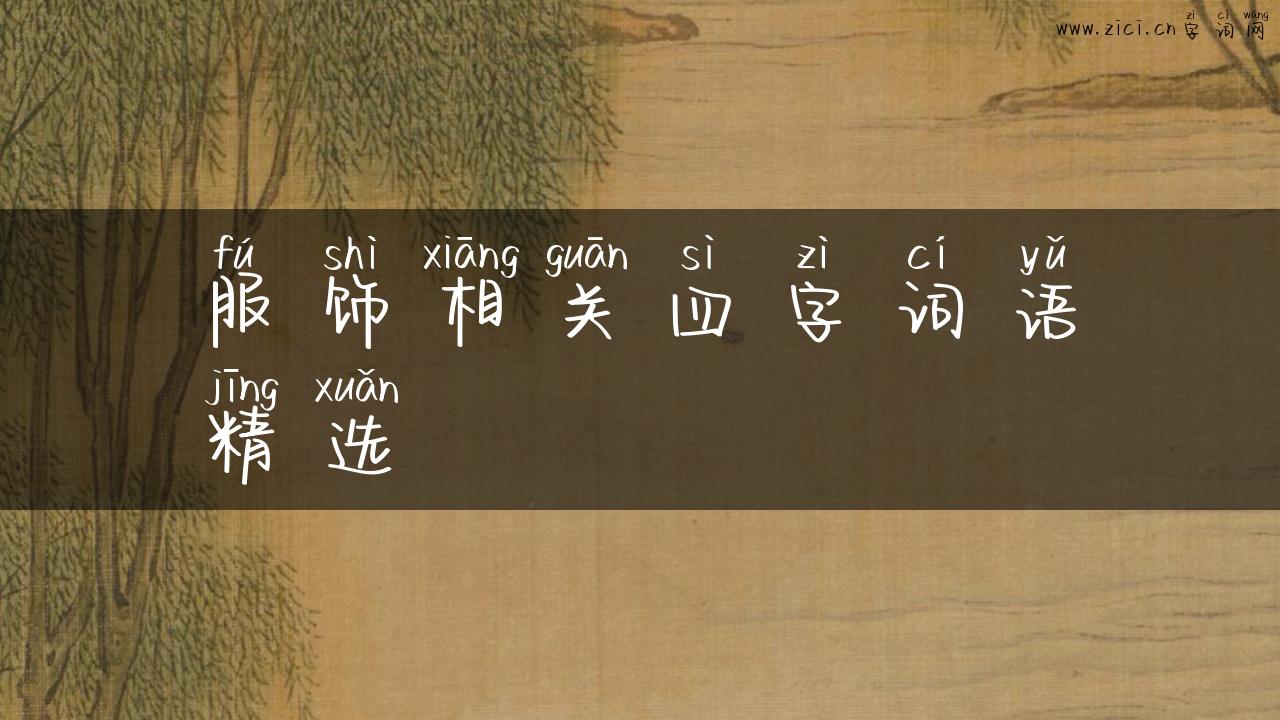 zì cí wǎng
www.zici.cn 字词网
fú shì xiāng guān sì zì cí yǔ
服饰相关四字词语
jīng xuǎn
精选